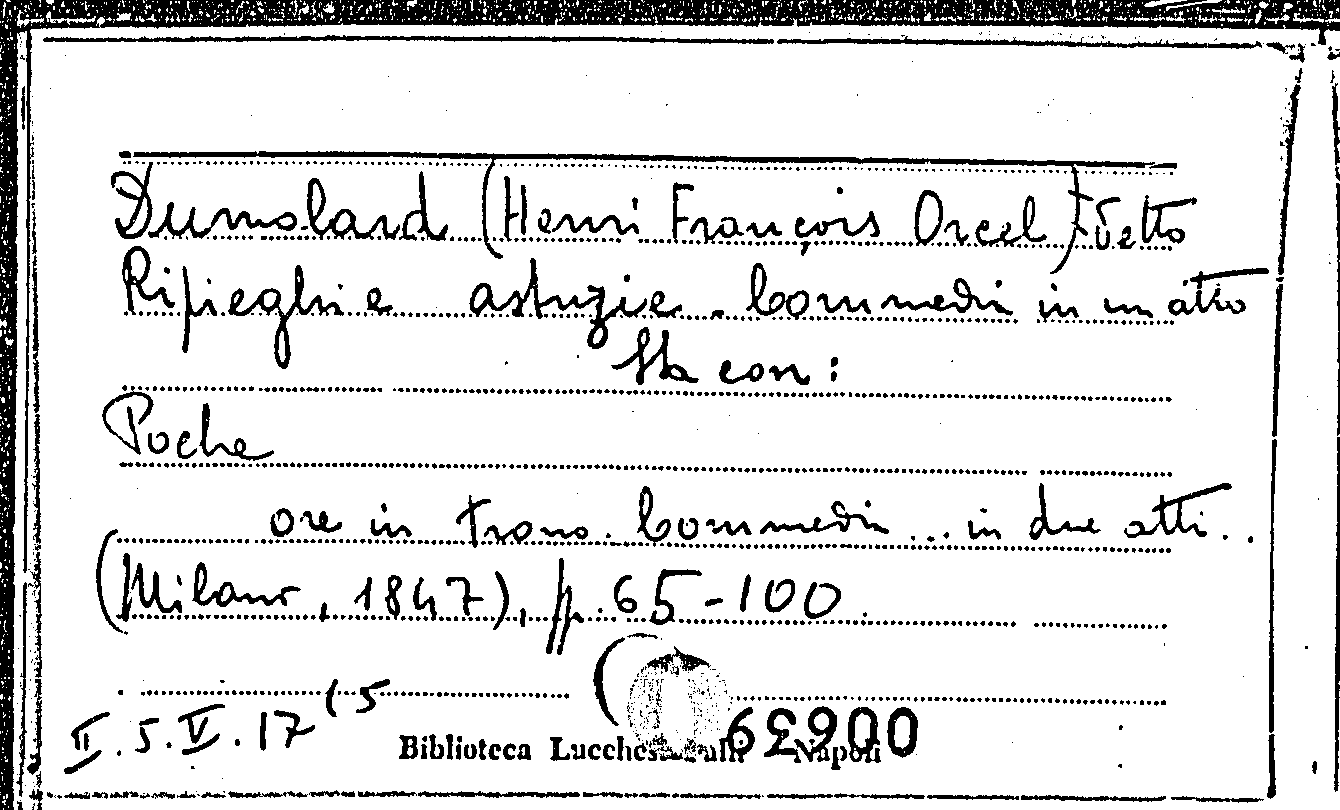 Dumolard (Henri François Orcel) detto
Ripieghi e astuzie. Commedia in un atto
Sta con:
Poche
ore in trono. Commedia... in due atti..
(Milano, 1847), pp. 65-100.
II.5.V.17(5
Biblioteca Napoli